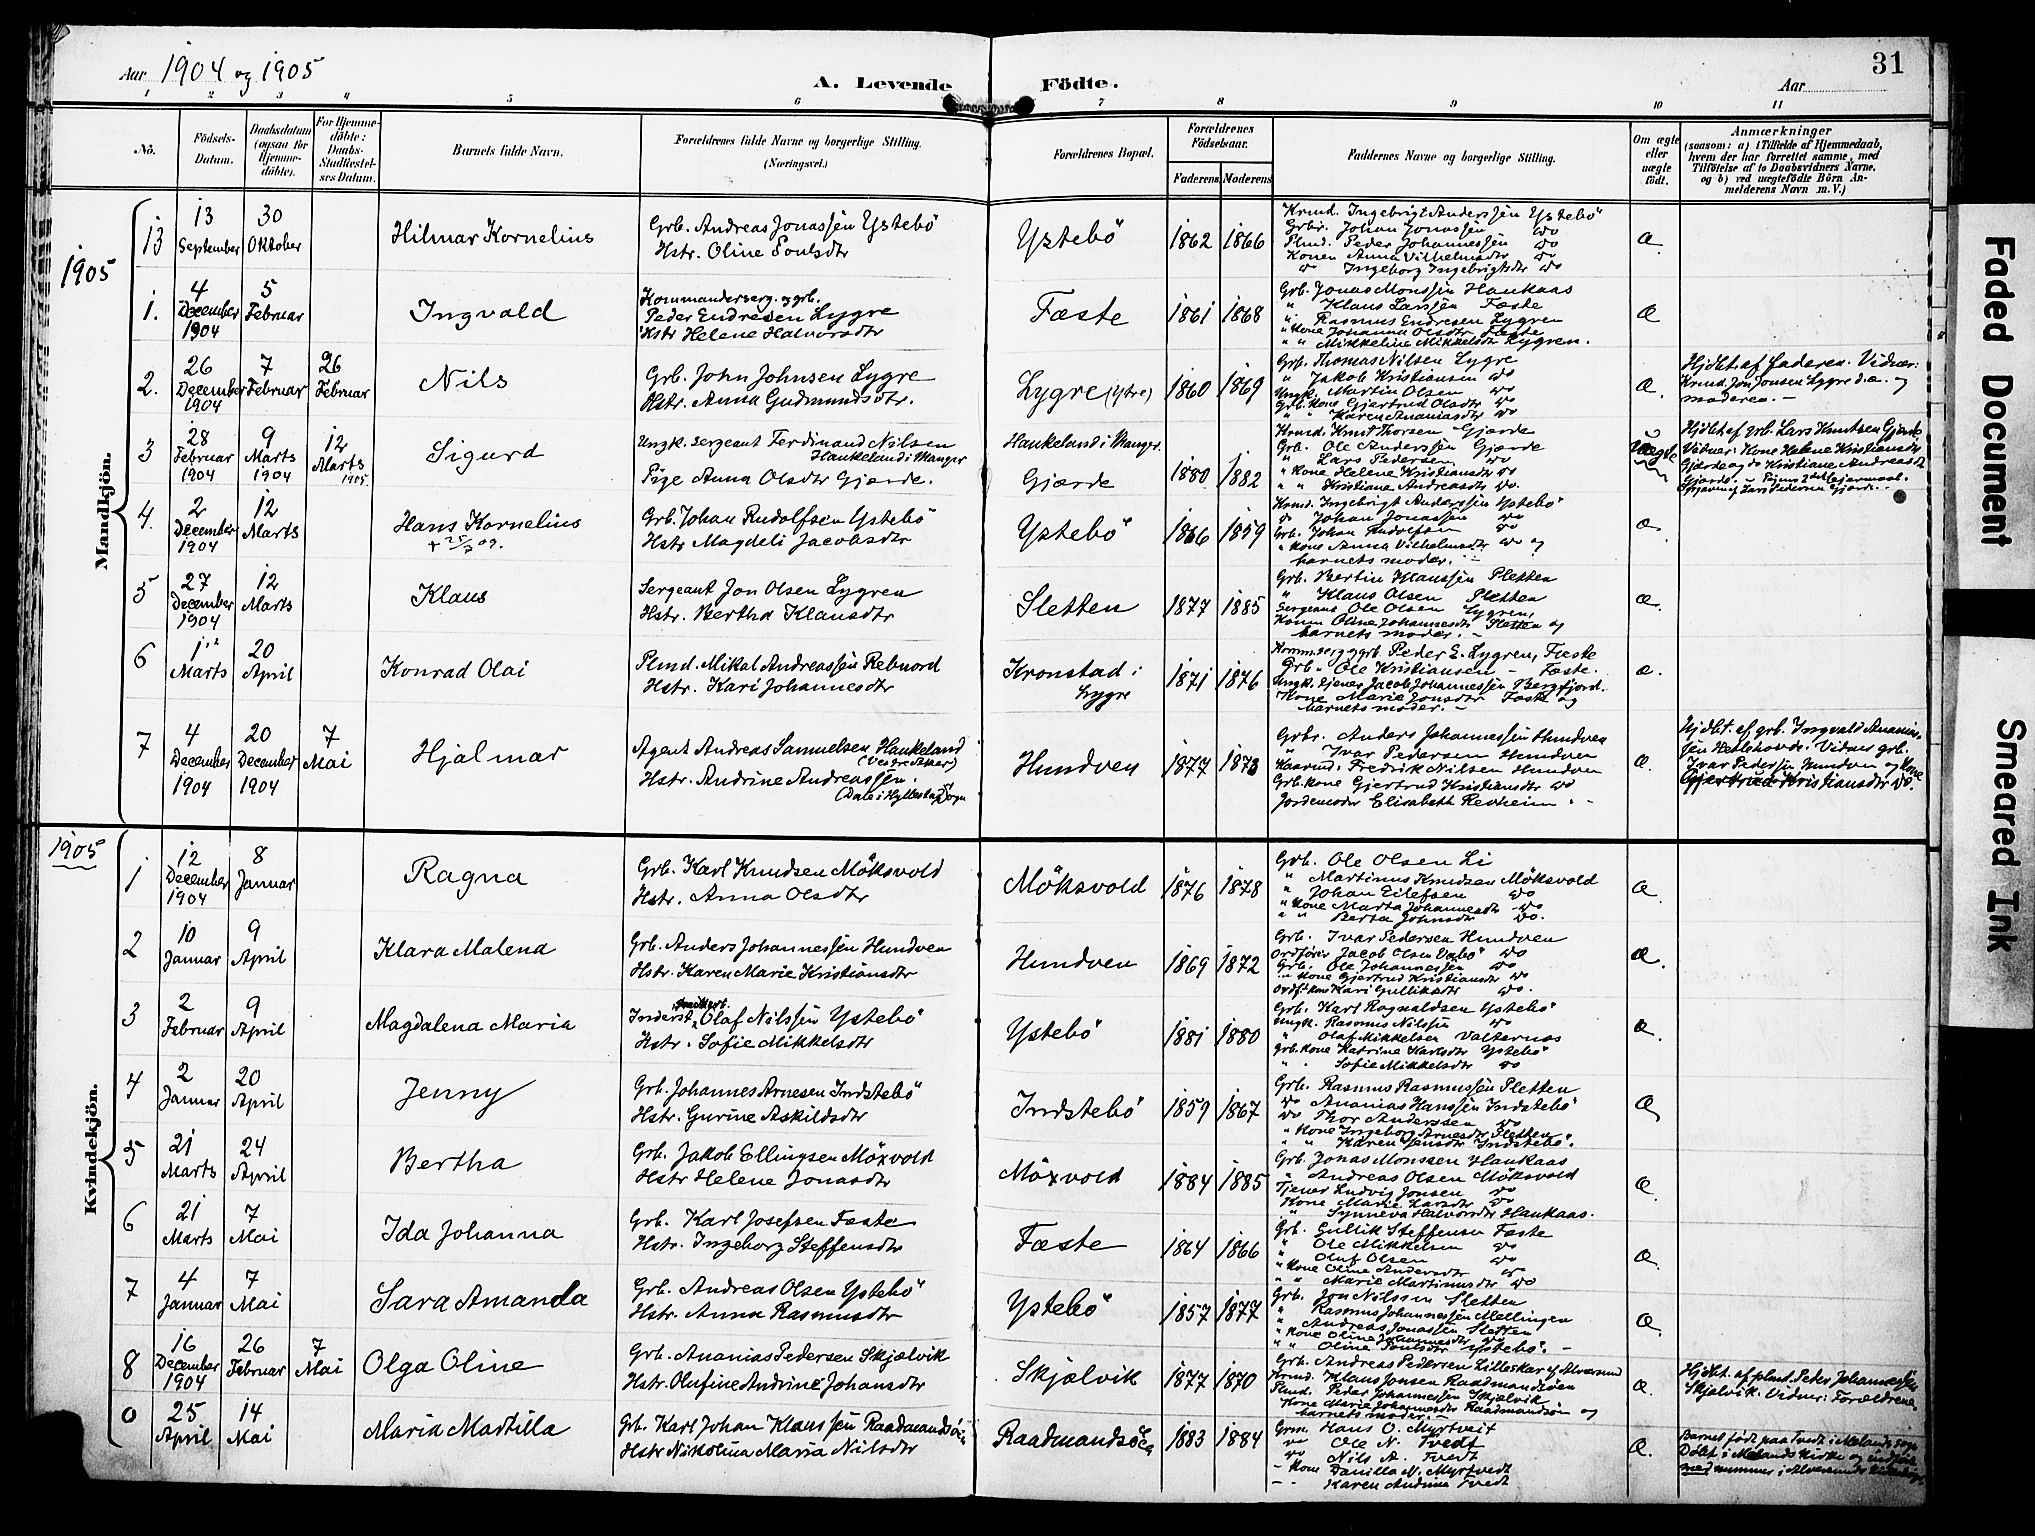 Aar 1904 og 1905
A. Levende Födte.
Aar
31
1 2 3 4 5 6 7 8 9 10 11
No.
Födsels-Datum.
Daabsdatum (ogsaa for Hjemmedöbte).
For Hjemmedöbte: Daabs-Stadfæstelses Datum.
Barnets fulde Navn.
Forældrenes fulde Navne og borgerlige Stilling. (Næringsvei.)
Forældrenes Bopæl.
Forældrenes Födselsaar.
Faderens Moderens
Faddernes Navne og borgerlige Stilling.
Om ægte eller uægte födt.
Anmærkninger
(saasom: a) i Tilfælde af Hjemmedaab,
hvem der har forrettet samme, med
Tilföielse af to Daabsvidners Navne,
og b) ved uægtefödte Börn An-
melderens Navn m. V.)
Mandkjön.
13
13 September
30 Oktober
Hilmar Kornelius
Grb. Andreas Jonassen Ystebö
Hstr. Oline Poulsdtr
Ystebö
1862 1866
Krmd. Ingebrigt Anderssen Ystebö
Grbr. Johan Jonassen do
Plmd. Peder Johannessen do
Konen Anna Vilhelmsdtr do
do Ingeborg Ingebrigtsdtr do
Æ
1905
1.
4 December 1904
5 Februar
Ingvald
Kommanderserg. og grb.
Peder Endresen Lygre
Hstr Helene Halvorsdtr
Fæste
1861 1868
Grb. Jonas Monssen Haukaas
" Klaus Larssen Fæste
" Rasmus Endresen Lygren
" Kone Johanna Olsdtr Fæste
" " Mikkeline Mikkelsdtr Lygren.
Æ
2.
26 December 1904
7 Februar
26 Februar
Nils
Grb. John Johnsen Lygre
Hstr. Anna Gudmundsdtr.
Lygre (ytre)
1860 1869
Grb. Thomas Nilsen Lygre
" Jakob Kristiansen do
Ungk. Martin Olsen do
Grb. Kone Gjertrud Olsdtr do
" " Karen Ananiasdtr do
Æ.
Hjdbt. af Faderen. Vidner:
Krmd. Jon Jonsen Lygre d.æ. og
moderen. -
3
28 Februar 1904
9 Marts 1904
12 Marts 1905
Sigurd
Ungk. sergeant Ferdinand Nilsen
Haukeland i Manger
Pige Anna Olsdtr Gjærde.
Haukeland i Manger.
Gjærde
1880 1882
Krmd. Knut Thorsen Gjærde
Grb. Ole Anderssen Gjærde
" Lars Pedersen do
" Kone Helene Kristiansdtr do
" " Kristiane Andreasdtr do.
Uægte
Hjdbt. af grb. Lars Knutsen Gjærde.
Vidner: Kone Helene Kristiansdtr
Gjærde og do Kristiane Andreasdtr
Gjærde.
Lars Pedersen Gjærde.
4.
2 December 1904
12 Marts
Hans Kornelius
Grb. Johan Rudolfsen Ystebö
Hstr Magdeli Jacobsdtr
Ystebö
1866 1859
Krmd. Ingebrigt Anderssen Ystebö
do Johan Jonassen do
Grb. Johan Rudolfsen do
" Kone Anna Vilhelmsdtr do og
barnets moder. -
Æ
5
27 December 1904
12 Marts
Klaus
Sergeant Jon Olsen Lygren
Hstr. Bertha Klausdtr
Sletten
1877 1885
Grb. Bertin Hanssen Sletten
" Klaus Olsen Sletten
Sergeant Ole Olsen Lygren,
Konen Oline Johannesdtr Sletten og
barnets moder. -
Æ.
6
1 Marts
20 April
Konrad Olai
Plmd. Mikal Andreassen Rebnord
Hstr. Kari Johannesdtr
Kronstad i Lygre
1871 1876
Komm.serg og grb. Peder E. Lygren, Fæste
Grb. Ole Kristiansen - Fæste.
Ungk. tjener Jacob Johannessen Bergfjord.
Kone Marie Jonsdtr Fæste og
barnets moder. -
Æ.
7
4 December 1904
20 December 1904
7 Mai
Hjalmar
Agent Andreas Samuelsen Haukeland
(Vestre Aker)
Hstr. Andrine Andreassen.
(Dale i Hyllestad Sogn
Hundven
1877 1873
Grbr. Anders Johannessen Hundven
" Ivar Pedersen Hundven
Kaarmd. Fredrik Nilsen Hundven
Grb. kone Gjertrud Kristiansdtr do
Jordemoder Elisabeth Revheim. -
Æ.
Hjdbt. af grb. Ingvald Ananiassen
Vidner grb.
Ivar Pedersen Hundven og Kone
Gjertrud Kristiansdtr do.
1905
Kvindekjön.
1
12 December 1904
8 Januar
Ragna
Grb. Karl Knudsen Möksvold
Hstr. Anna Olsdtr
Möksvold
1876 1878
Grb. Ole Olsen Li
" Martinus Knudsen Möksvold
" Johan Eilefsen do
" Kone Marta Johannesdtr do
" " Berta Johnsdtr do.
Æ
2
10 Januar
9 April
Klara Malena
Grb. Anders Johannessen Hundven
Hstr. Karen Marie Kristiansdtr
Hundven
1869 1872
Grb. Ivar Pedersen Hundven
Ordförer Jacob Olsen Vabö do
Grb. Ole Johannessen do
" Kone Gjertrud Kristiansdtr do
Ordf. kone Kari Gulliksdtr do.
Æ.
3
2 Februar
9 April
Magdalena Maria
Inderst, Olaf Nilssen Ystebö
Hstr. Sofie Mikkelsdtr
Ystebö
1881 1880
Grb. Karl Rognaldsen Ystebö
Ungk. Rasmus Nilssen do
" Olaf Mikkelsen Valternes
Grb. kone Katrine Karlsdtr Ystebö
" " Sofie Mikkelsdtr do
Æ.
4
2 Januar
20 April
Jenny
Grb. Johannes Arnesen Indstebö
Hstr. Gurine Askildsdtr
Indstebö
1859 1867
Grb. Rasmus Rasmussen Sletten
do Ananias Hanssen Indstebö
do Thor Anderssen do
" Kone Ingeborg Arnesdtr Sletten
" " Karen Jensdtr Indstebö.
Æ
5
21 Marts
24 April
Bertha
Grb. Jakob Ellingsen Möxvold
Hstr Helene Jonasdtr
Möxvold
1884 1885
Grb. Jonas Monssen Haukaas
" Andreas Olsen Möksvold
Tjener Ludvig Jonsen do
Kone Marie Larsdtr do
" Synneva Halvorsdtr Haukaas.
Æ.
6
21 Marts
7 Mai
Ida Johanna
Grb. Karl Josefsen Fæste
Hstr. Ingeborg Steffensdtr
Fæste
1864 1866
Grb. Gullik Steffensen Fæste
" Ole Mikkelsen do
" Oluf Olsen do
" Kone Oline Andersdtr do
" " Marie Martinusdtr do
Æ.
7
4 Januar
7 Mai
Sara Amanda
Grb. Andreas Olsen Ystebö
Hstr. Anna Rasmusdtr
Ystebö
1857 1877
Grb. Jon Nilssen Sletten
" Rasmus Johannessen Mellingen
" Andreas Jonassen Sletten
" Kone Oline Johannesdtr do
" " Oline Poulsdtr Ystebö. -
Æ.
8
16 December 1904
26 Februar
7 Mai
Olga Oline
Grb. Ananias Pedersen Skjælvik
Hstr. Olufine Andrine Johansdtr
Skjælvik
1877 1870
Grb. Andreas Pedersen Lilleskar i Alversund
Krmd. Klaus Jonsen Raadmandsöen
Plmd. Peder Johannessen Skjælvik
Kone Marie Johannesdtr Raadmandsöen og
barnets moder. -
Æ.
Hjdbt. af plmd. Peder Johannessen
Skjælvik. Vidner: Forældrene.
0
25 April
14 Mai
Maria Martilla
Grb. Karl Johan Klaussen Raadmandsöen
Hstr Nikolina Maria Nilsdtr
Raadmandsöen
1883 1884
Grm. Hans O. Myrtveit
do Ole N. Tvedt
do Nils A. Tvedt
- Kone Danilla N. Myrtvedt
- - Karen Andrine Tvedt
Æ.
Barnet född paa Tvedt i Mælands sogn
Döbt i Mælands Kirke og indfört
med nummer i Alversunds Kirkebog.
Faded Document
Smeared Ink